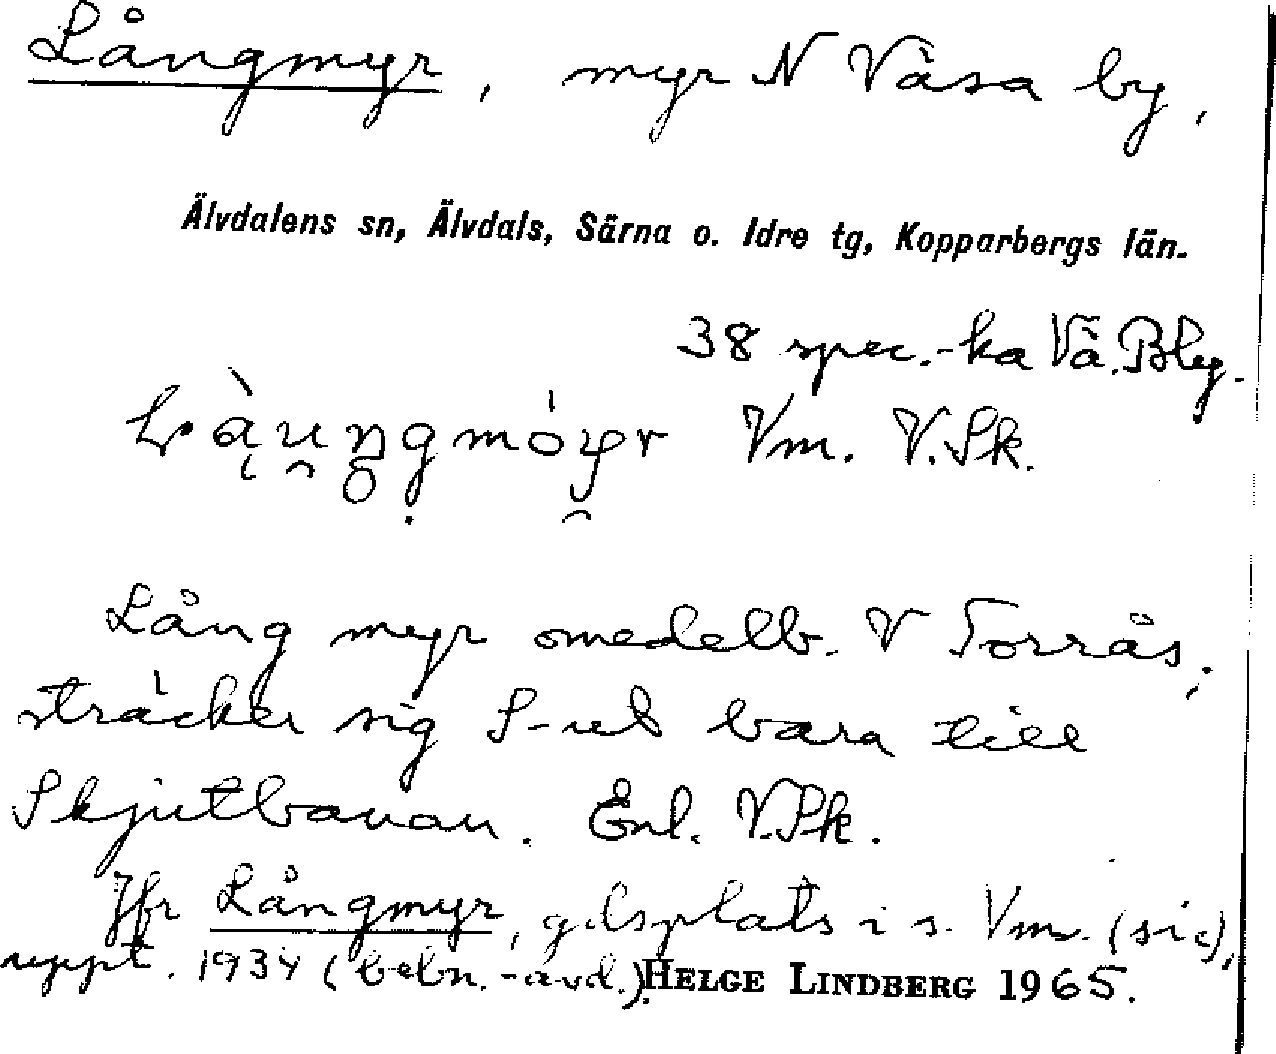 Långmyr, myr N Våsa by,
Älvdalens sn, Älvdals, Särna o. Idre tg, Kopparbergs län.
38 spec.-ka Vå. Bly.
Vm. V.Sk.
Lång myr omedelb. V Torrås,
sträcker sig S-ut bara till
Skjutbanan. Enl. V.Sk.
Jfr Långmyr, gdsplats i s. Vm. (sic),
uppt. 1934 (bebn.-avd.). HELGE LINDBERG 1965.